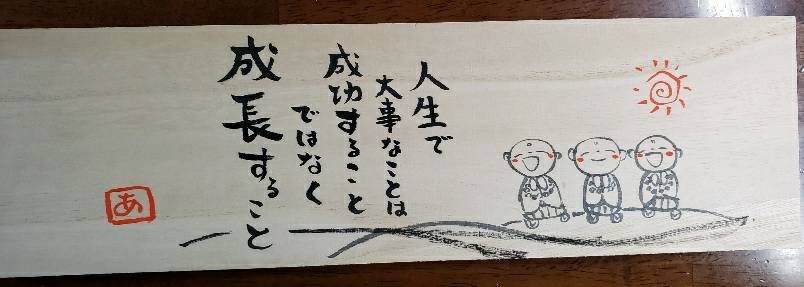 人生で
大事なことは
成功すること
ではなく
成長すること
あ